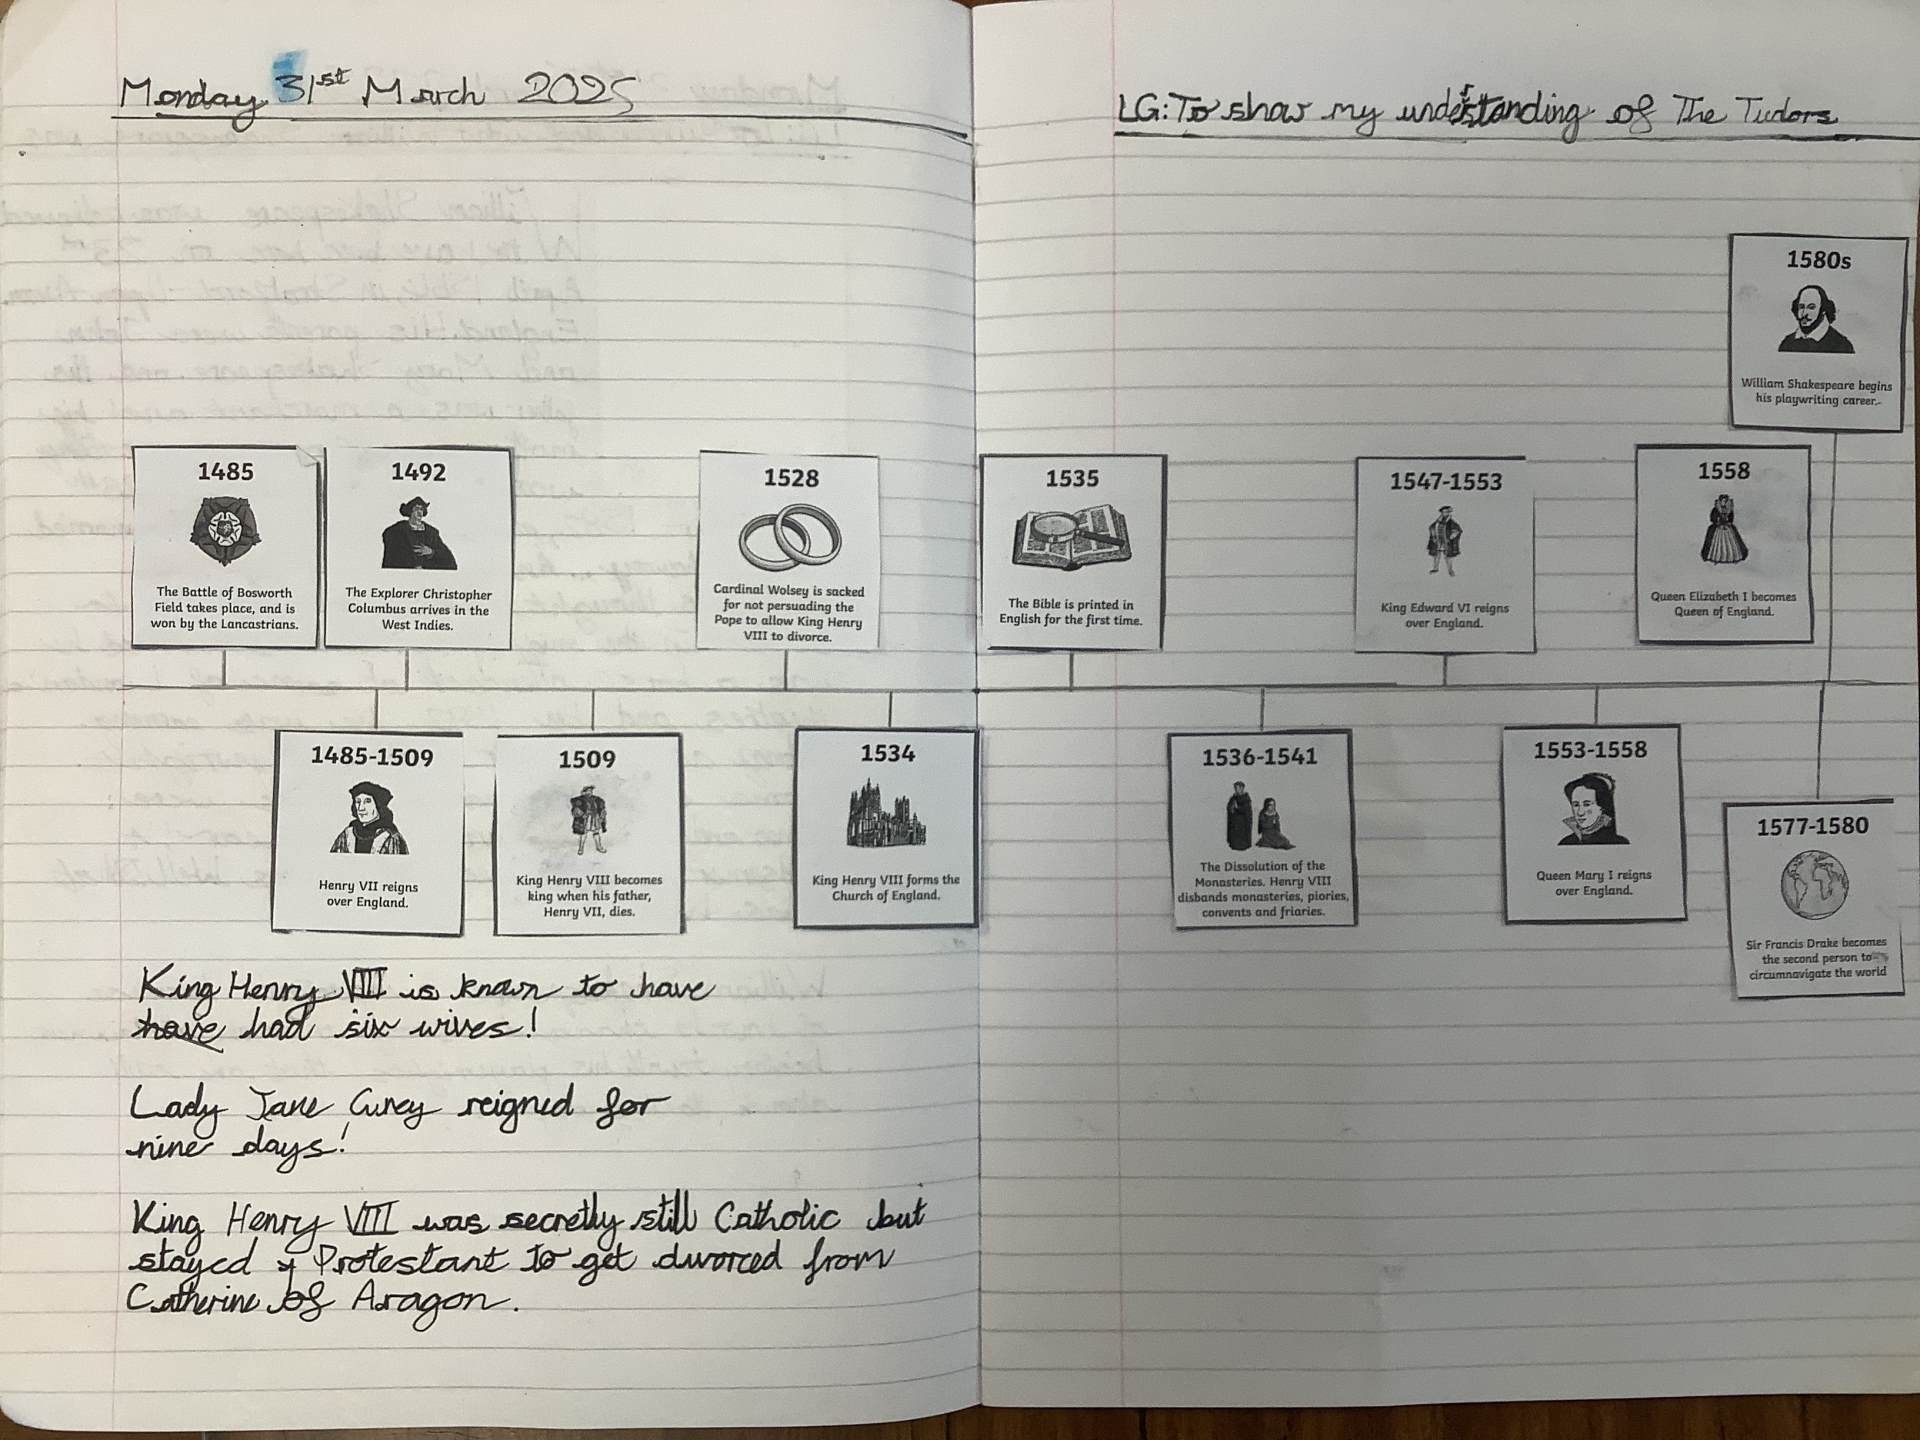 Monday 31st March 2025
LG: To show my understanding of The Tudors
1580s
William Shakespeare begins
his playwriting career.
1485
The Battle of Bosworth
Field takes place, and is
won by the Lancastrians.
1492
The Explorer Christopher
Columbus arrives in the
West Indies.
1528
Cardinal Wolsey is sacked
for not persuading the
Pope to allow King Henry
VIII to divorce.
1535
The Bible is printed in
English for the first time.
1547-1553
King Edward VI reigns
over England.
1558
Queen Elizabeth I becomes
Queen of England.
1485-1509
Henry VII reigns
over England.
1509
King Henry VIII becomes
king when his father,
Henry VII, dies.
1534
King Henry VIII forms the
Church of England.
1536-1541
The Dissolution of the
Monasteries. Henry VIII
disbands monasteries, piories,
convents and friaries.
1553-1558
Queen Mary I reigns
over England.
1577-1580
Sir Francis Drake becomes
the second person to
circumnavigate the world
King Henry VIII is known to have
have had six wives!
Lady Jane Grey reigned for
nine days!
King Henry VIII was secretly still Catholic but
stayed Protestant to get divorced from
Catherine of Aragon.